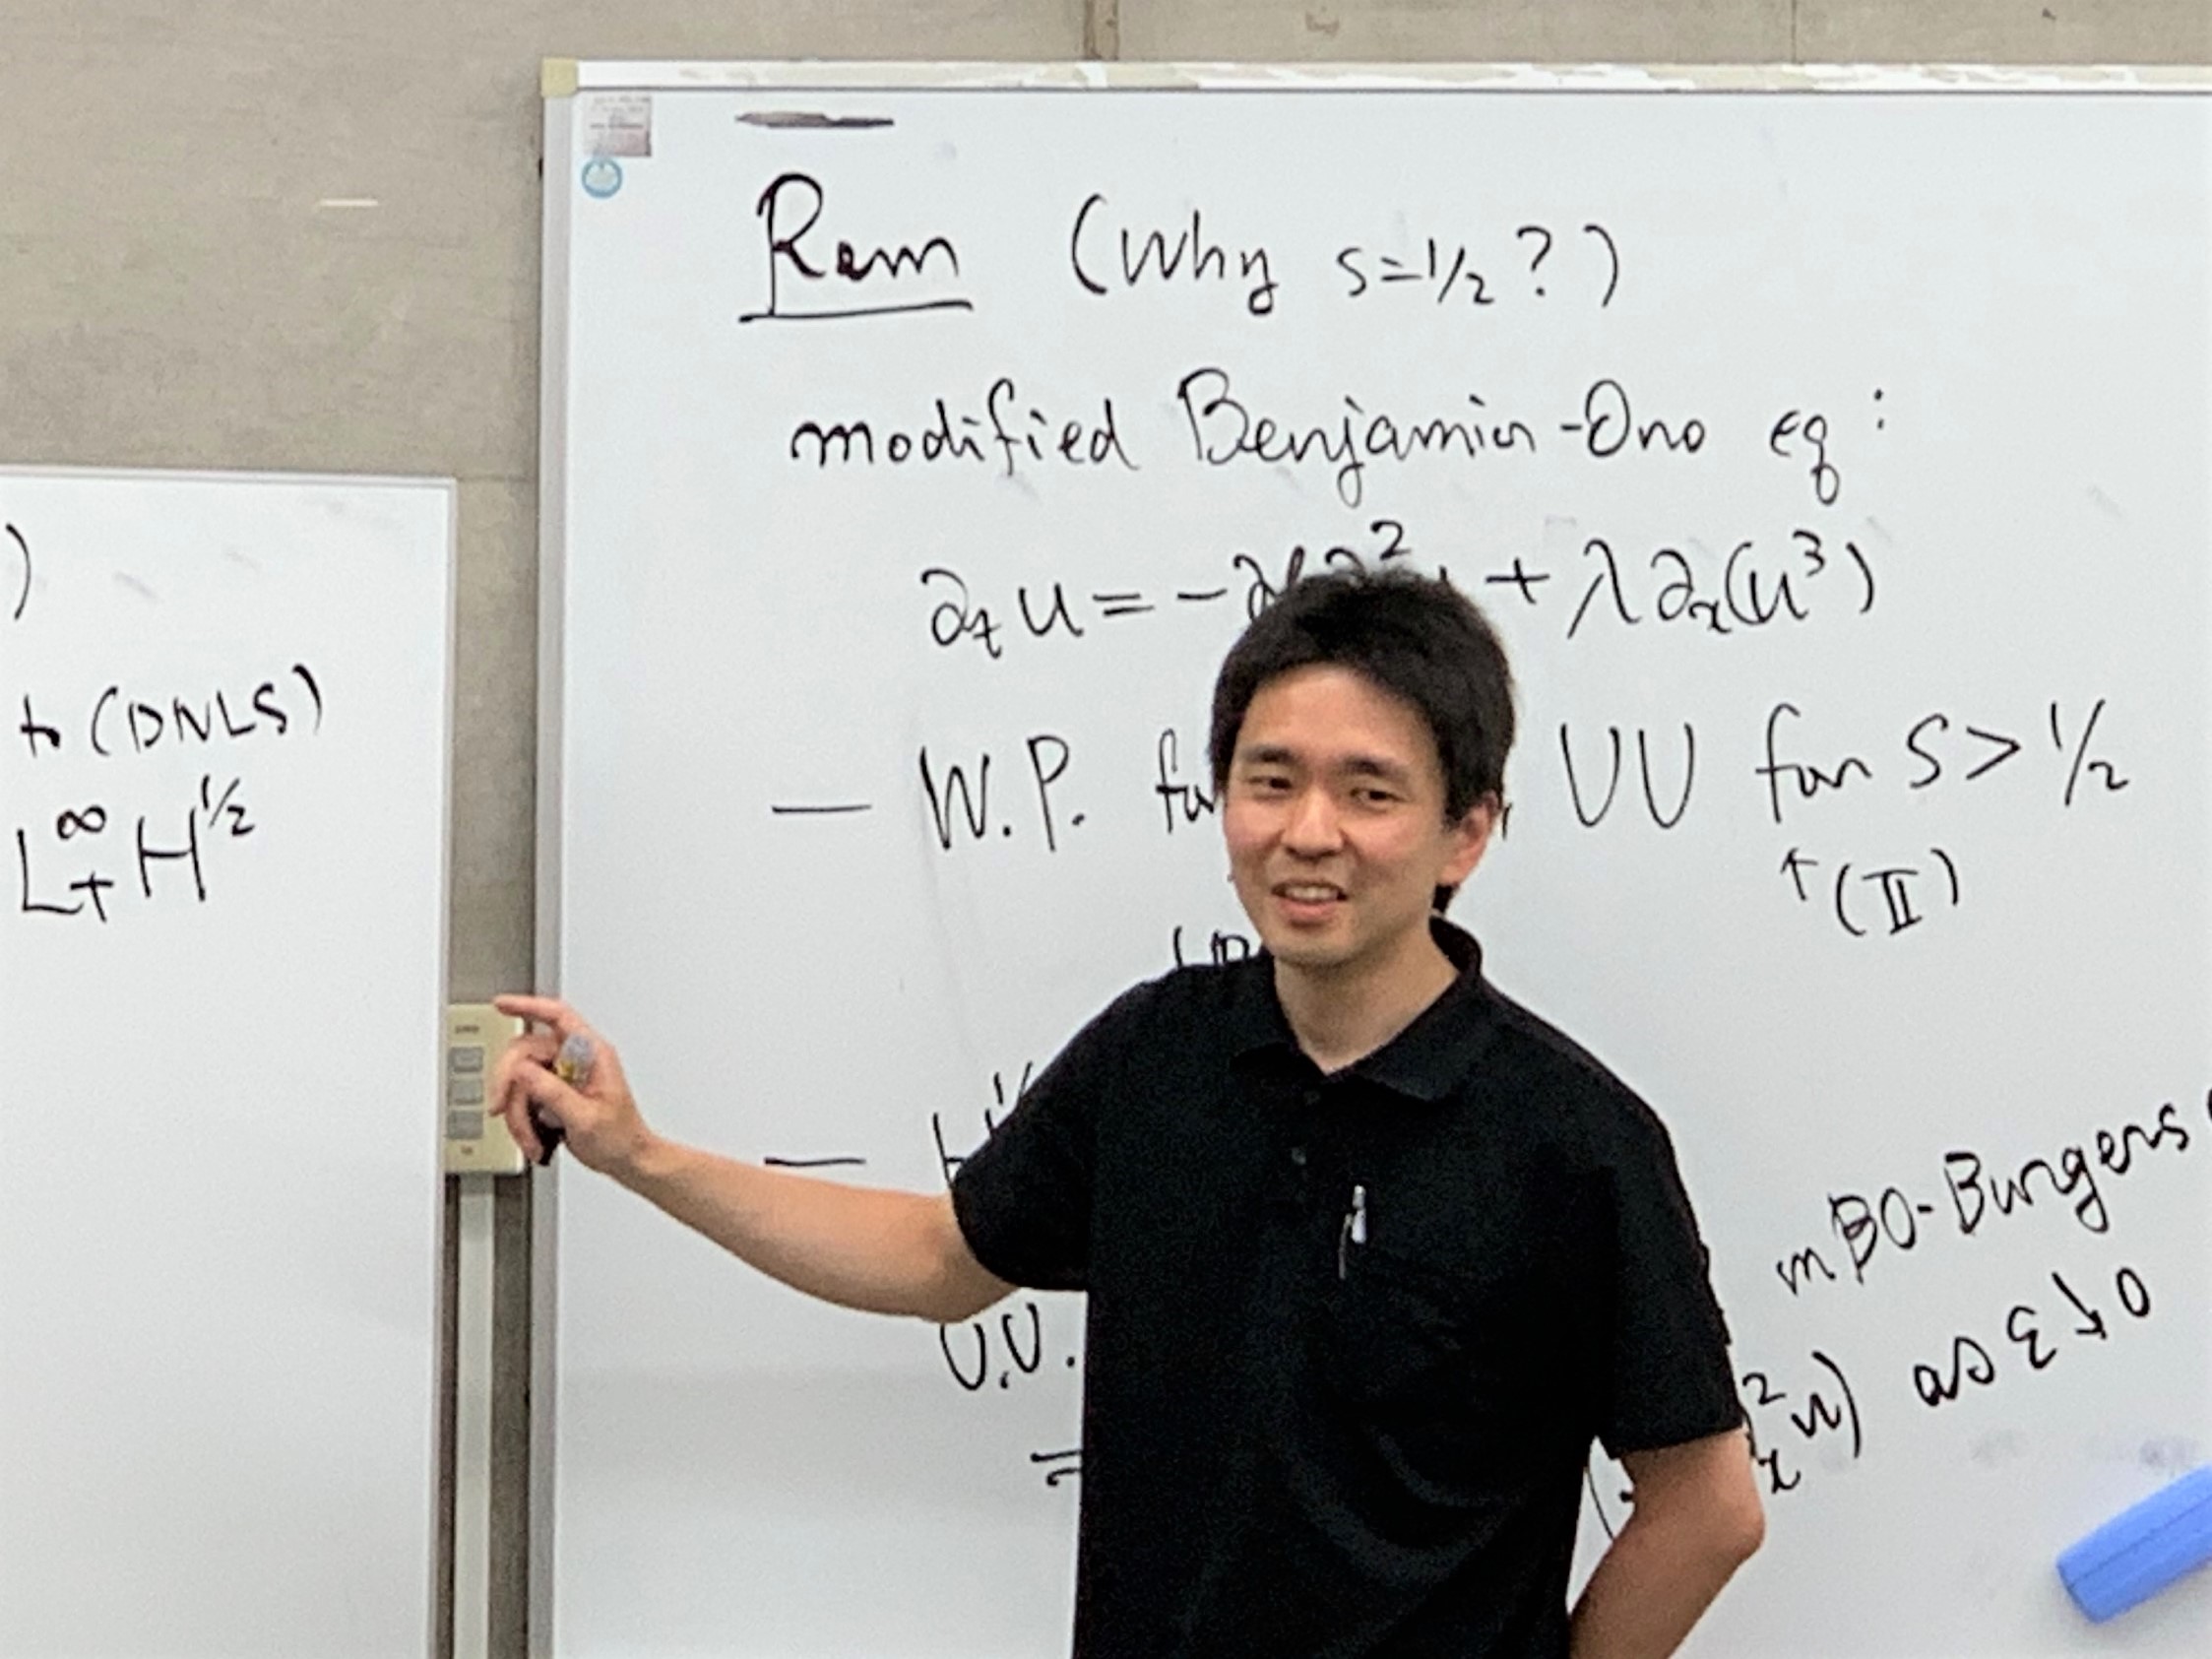 )
to (DNLS)
L^∞_T H^{1/2}
Rem (Why s=1/2?)
modified Benjamin-Ono eq:
∂_t u = - ∂^2 + λ∂_x(u^3)
— W.P. for UU for s > 1/2
↑(II)
— H
mBO-Burgers
U.U.
^2_x u) as ε↓0